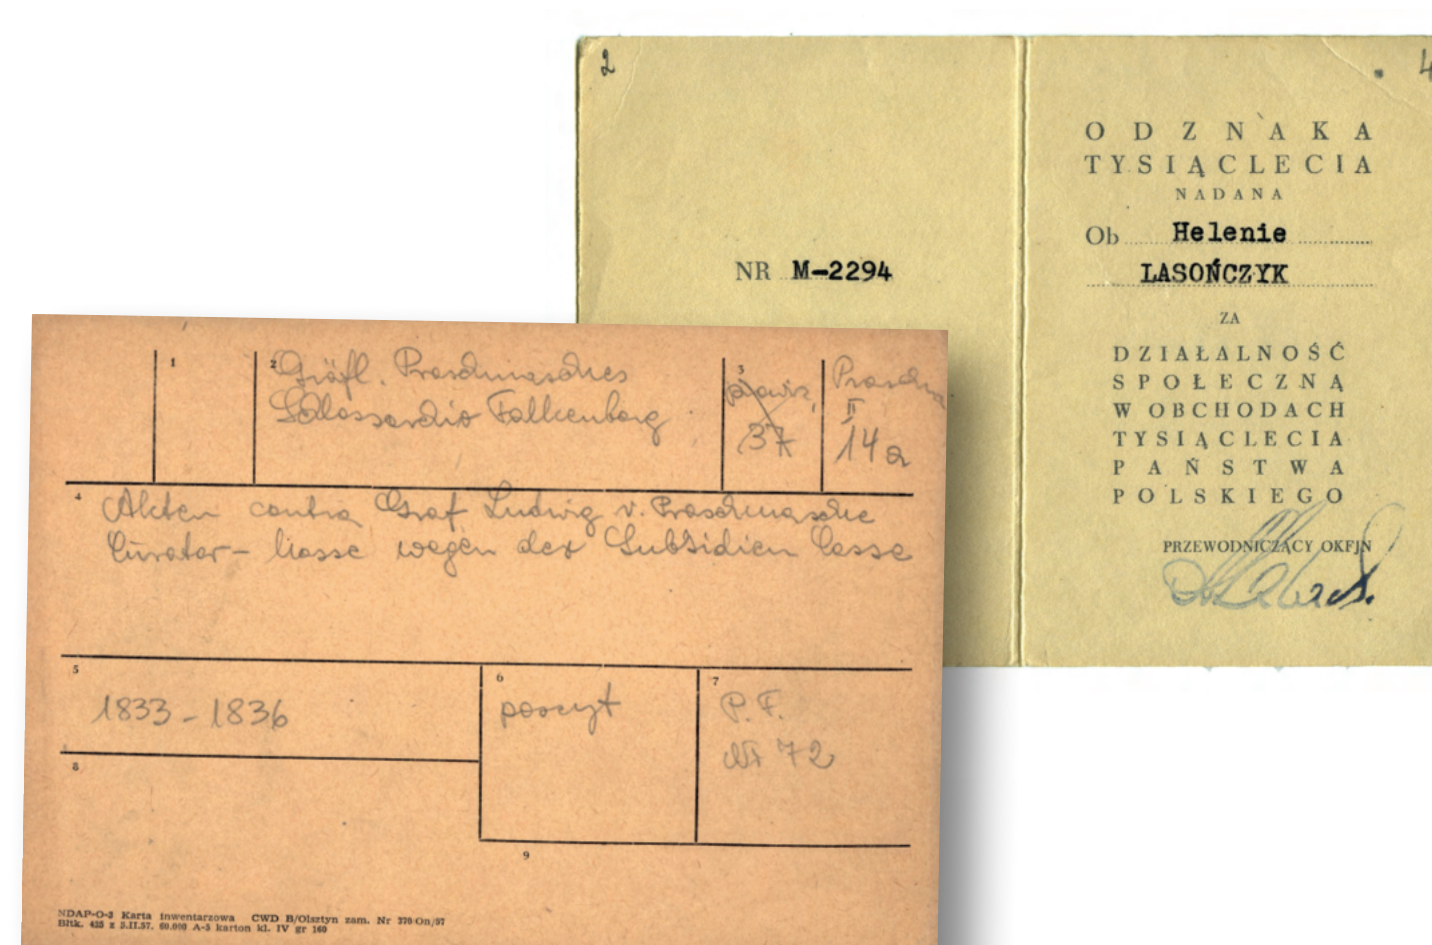 2
NR M-2294
4
ODZNAKA
TYSIĄCLECIA
NADANA
Ob Helenie
LASOŃCZYK
ZA
DZIAŁALNOŚĆ
SPOŁECZNĄ
W OBCHODACH
TYSIĄCLECIA
PAŃSTWA
POLSKIEGO
PRZEWODNICZĄCY OKFJN
1
2 Gräfl. Praschmasches
Schlossarchiv Falkenberg
3
37
Praschma
II
14a
4 Akten contra Graf Ludwig v. Praschmasche
Curator- Masse wegen der Subsidien Casse
5
1833 - 1836
6
poszyt
7
P. F.
Nr 72
8
9
NDAP-O-3 Karta inwentarzowa CWD B/Olsztyn zam. Nr 370/On/57
Bltk. 455 z 5.II.57. 60.000 A-5 karton kl. IV gr 160